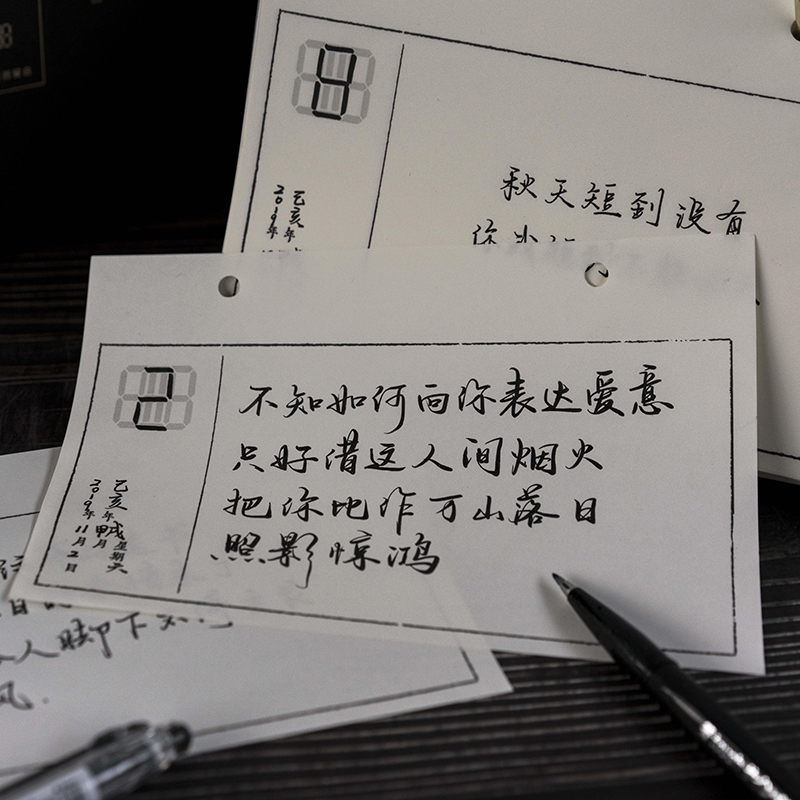 4
乙亥年
2019年
秋天短到没有
你
2
乙亥年
2019年11月2日
不知如何向你表达爱意
只好借这人间烟火
把你比作万山落日
照影惊鸿
人脚下
风.